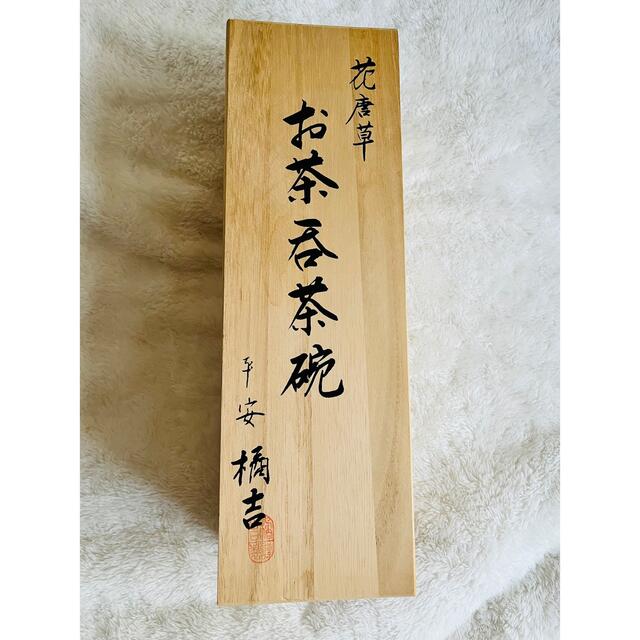 花唐草
お茶呑茶碗
平安
橘吉